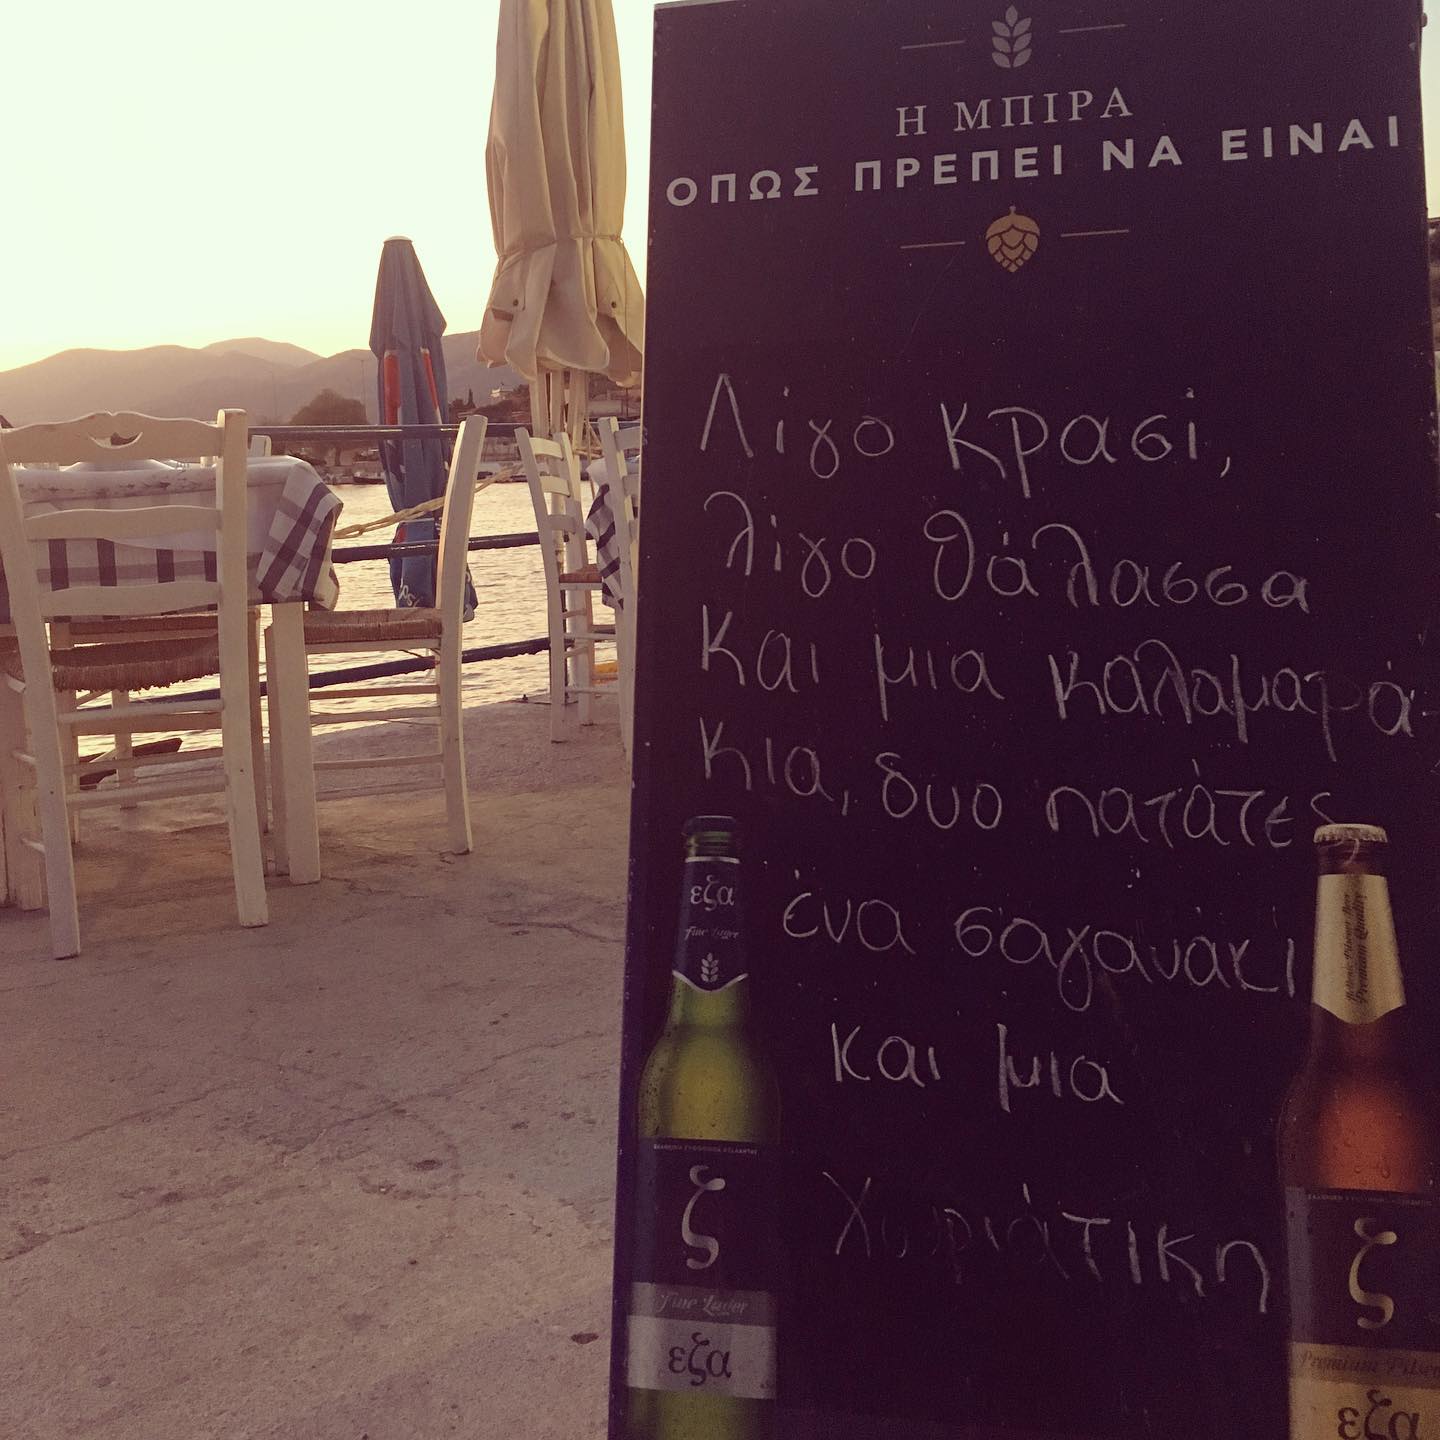 Η ΜΠΙΡΑ
ΟΠΩΣ ΠΡΕΠΕΙ ΝΑ ΕΙΝΑΙ
Λίγο κρασί,
λίγο θάλασσα
και μια καλαμαρά-
κια, δυο πατάτες
ένα σαγανάκι
και μια
χωριάτικη
εζα
Fine Lager
ζ
Fine Lager
εζα
Premium Pilsener
ζ
Premium Pilsener
εζα